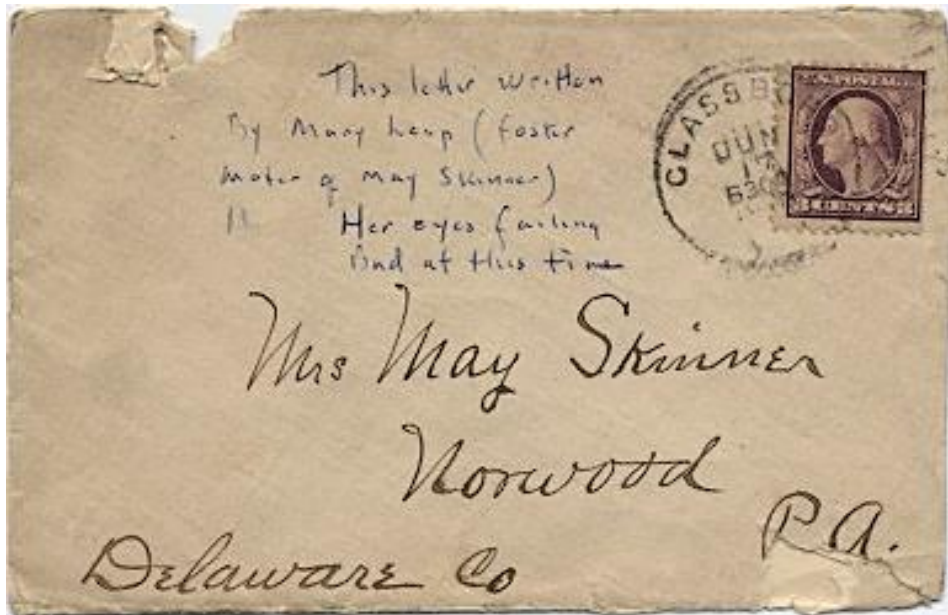 This letter written
By Mary Leap (foster
Moter of May Skinner)
Her eyes failing
Bad at this time
GLASSB
JUN
17
630
U.S. POSTAGE
3 CENTS 3
Mrs May Skinner
Norwood
P.A.
Delaware Co